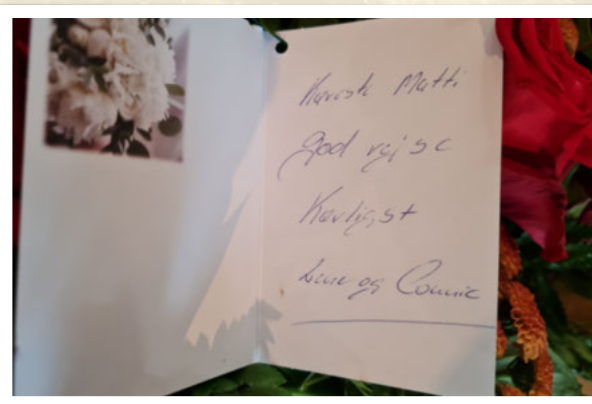 Kæreste Matti
God rejse
Kærligst
og Connie